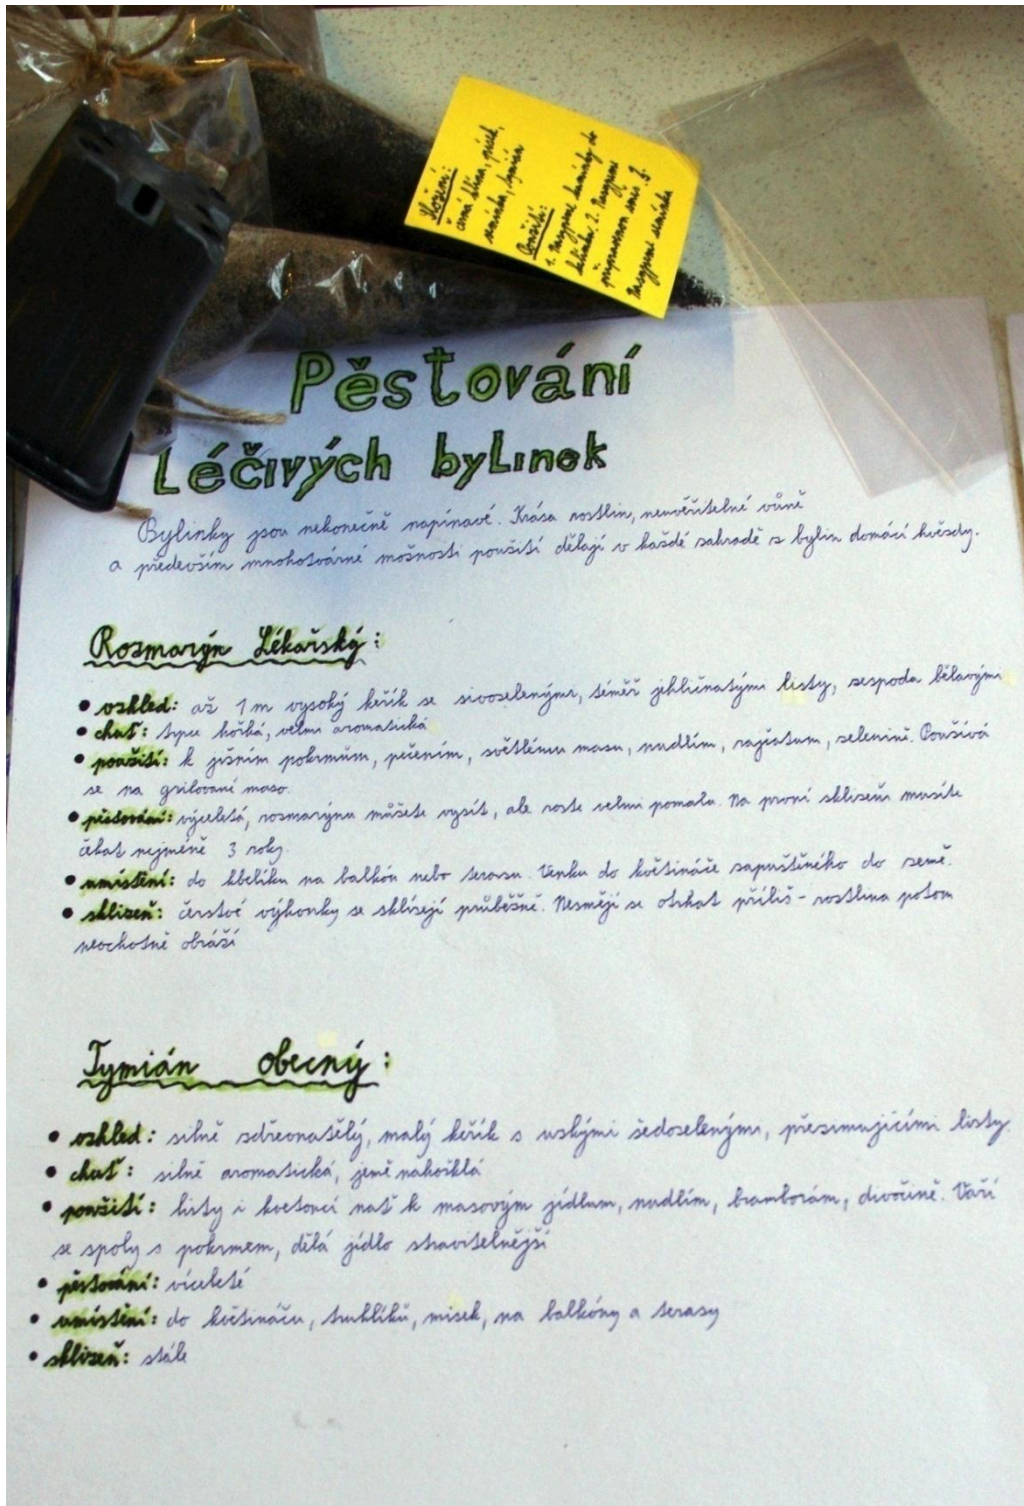 Složení:
černá hlína, písek,
semínka, tymián
Použití:
1. Nasypeme kamínky do
kelímku. 2. Nasypeme
připravenou směs 3.
Nasypeme semínka
Pěstování
Léčivých bylinek
Bylinky jsou nekonečně napínavé. Krása rostlin, neuvěřitelné vůně
a především mnohotvárné možnosti použití dělají v každé zahradě z bylin domácí hvězdy.
Rozmarýn Lékařský:
• vzhled: až 1 m vysoký keřík se sivozelenými, téměř jehličnatými listy, zespoda bělavými
• chuť: trpce hořká, velmi aromatická
• použití: k jižním pokrmům, pečením, světlému masu, nudlím, rajčatům, zelenině. Používá
se na grilovaní maso.
• pěstování: víceletá, rozmarýnu můžete vysít, ale roste velmi pomalu. Na první sklizeň musíte
čekat nejméně 3 roky.
• umístění: do kbelíku na balkón nebo terasu. Venku do květináče zapuštěného do země.
• sklizeň: čerstvé výhonky se sklízejí průběžně. Nesmějí se otrhat příliš - rostlina potom
neochotně obráží
Tymián obecný:
• vzhled: silně zdřevnatělý, malý keřík s uzkými šedozelenými, přezimujícími listy.
• chuť: silně aromatická, jemě nahořklá
• použití: listy i kvetoucí nať k masovým jídlum, nudlím, bramborám, divočině. Vaří
se spolu s pokrmem, dělá jídlo stravitelnější
• pěstování: víceleté
• umístění: do květináču, truhlíků, misek, na balkóny a terasy
• sklizeň: stále